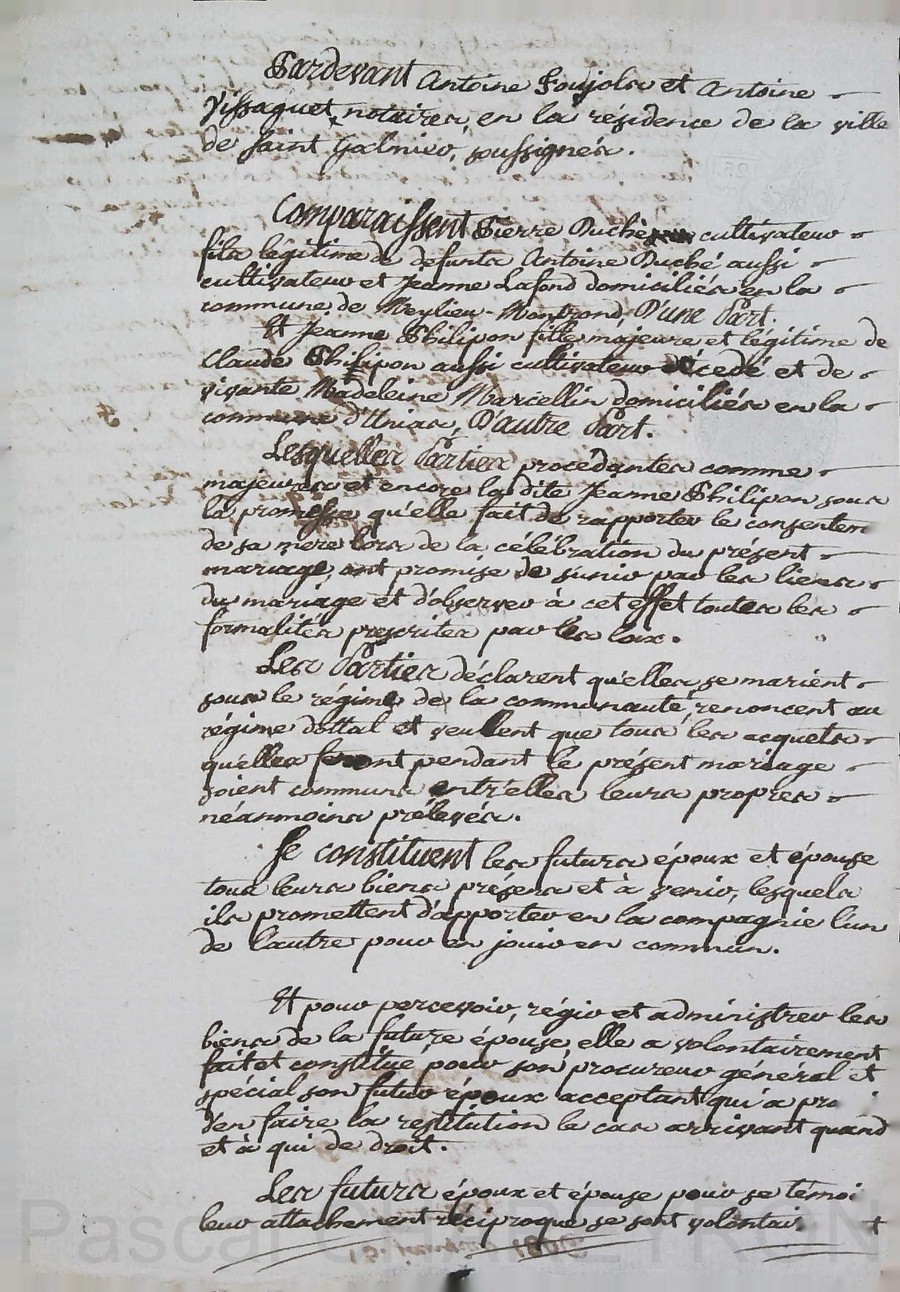 Pardevant Antoine Poujola et Antoine
Vissaguet, notaires, en la résidence de la ville
de Saint Galmier, soussignés.
Comparaissent Pierre Duché cultivateur
fils légitime de defunts Antoine Duché aussi
cultivateur et Jeanne Lafond domiciliés en la
commune de Meylieu-Montrond, D'une Part.
Et Jeanne Philipon fille majeure et légitime de
Claude Philipon aussi cultivateur décedé et de
vivante Madeleine Marcellin domiciliés en la
commune d'Unias, D'autre Part.
Lesquelles Parties procédantes comme
majeures et encore la dite Jeanne Philipon sous
la promesse qu'elle fait de rapporter le consentem
de sa mere lors de la célébration du présent
mariage, ont promise de s'unir par les liens
du mariage et d'observer à cet effet toutes les
formalités prescrites par les loix.
Les Parties déclarent qu'elles se marient
sous le régime de la communauté, renoncent au
régime dottal et veullent que tous les acquets
qu'elles feront pendant le présent mariage
soient communs entr'elles leurs propres
néanmoins prélevés.
Se constituent les futurs époux et épouse
tous leurs biens présens et à venir, lesquels
ils promettent d'apporter en la compagnie l'un
de l'autre pour en jouir en commun.
Et pour percevoir, régir et administrer les
biens de la future épouse elle a volontairement
fait et constitué pour son procureur général et
spécial son futur époux acceptant qui a pro
d'en faire la restitution le cas arrivant quand
et à qui de droit.
Les futurs époux et épouse pour se témoi
leur attachement réciproque se sont volontair
Pascal CHAREYRON